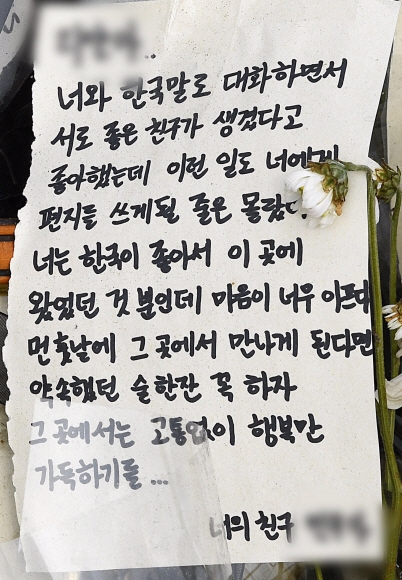 너와 한국말로 대화하면서
서로 좋은 친구가 생겼다고
좋아했는데 이런 일도 너에게
편지를 쓰게될 줄은 몰랐다.
너는 한국이 좋아서 이 곳에
왔었던 것 뿐인데 마음이 너무 아프다
먼훗날에 그 곳에서 만나게 된다면
약속했던 술한잔 꼭 하자
그 곳에서는 고통없이 행복만
가득하기를...
너의 친구